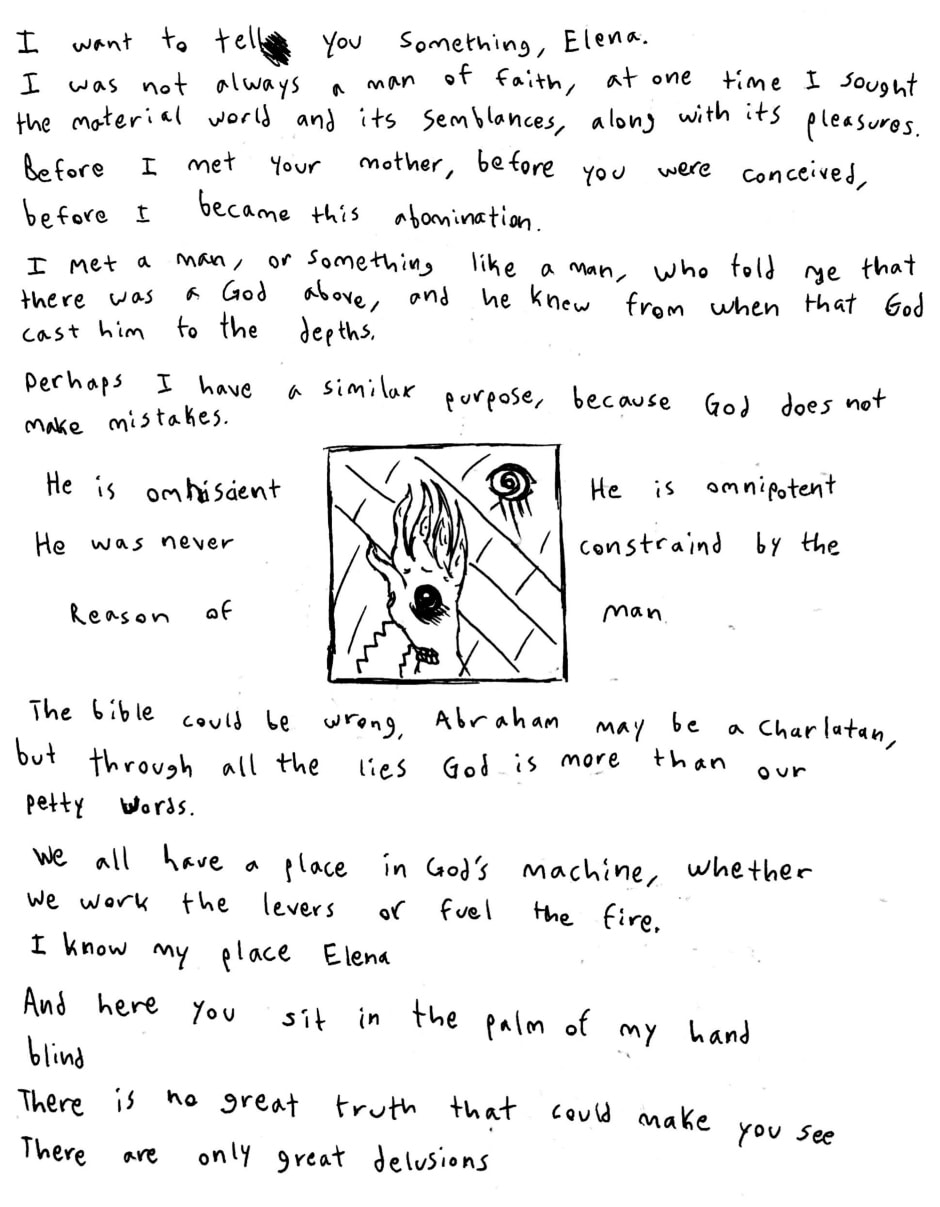 I want to tell you something, Elena.
I was not always a man of faith, at one time I sought
the material world and its semblances, along with its pleasures.
Before I met your mother, before you were conceived,
before I became this abomination.
I met a man, or something like a man, who told me that
there was a God above, and he knew from when that God
cast him to the depths.
Perhaps I have a similar purpose, because God does not
make mistakes.
He is omniscient He is omnipotent
He was never constraind by the
Reason of man
The bible could be wrong, Abraham may be a charlatan,
but through all the lies God is more than our
petty words.
We all have a place in God's machine, whether
we work the levers or fuel the fire.
I know my place Elena
And here you sit in the palm of my hand
blind
There is no great truth that could make you see
There are only great delusions